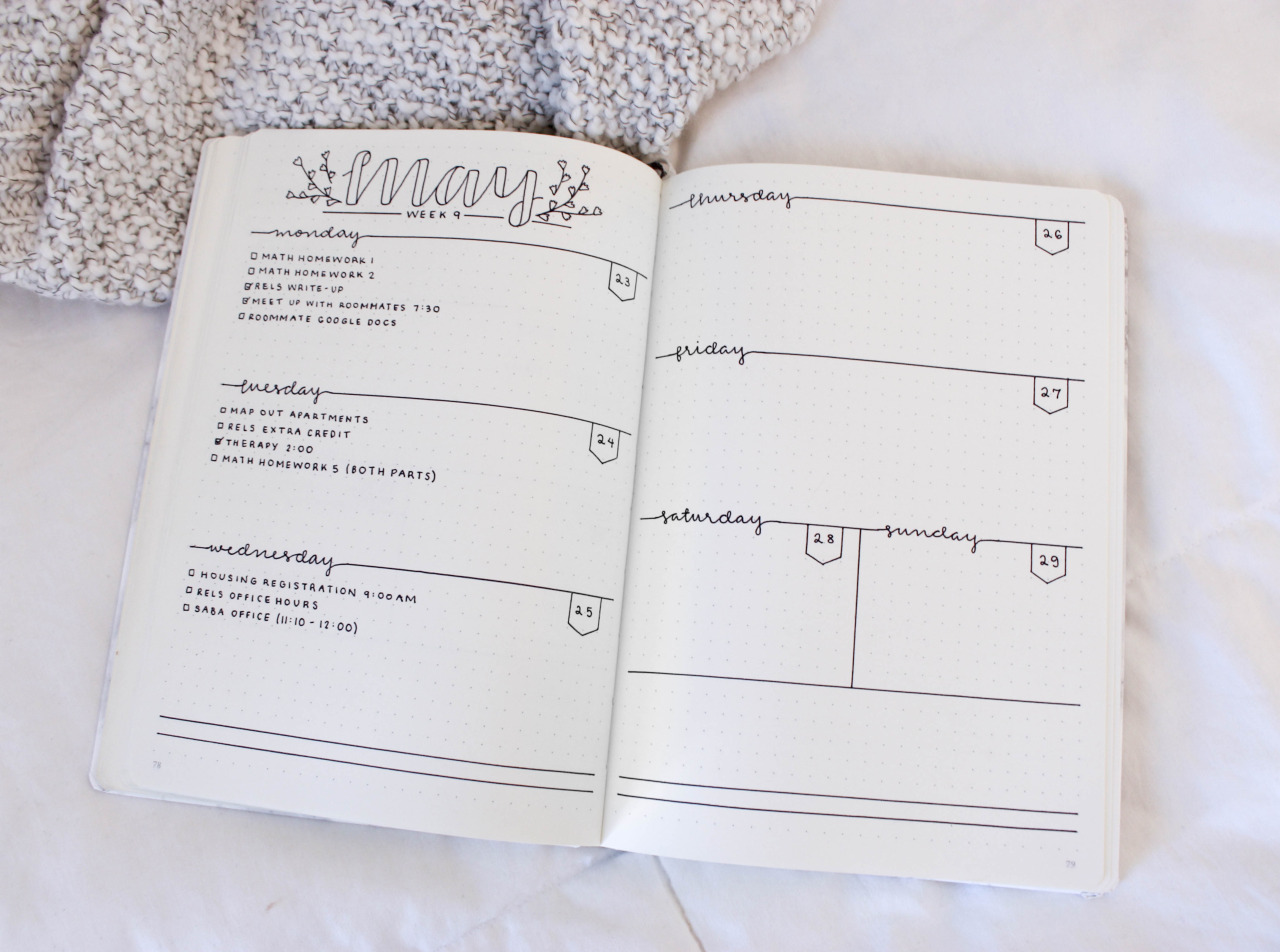 may
WEEK 9
monday
23
☐ MATH HOMEWORK 1
☐ MATH HOMEWORK 2
☑ RELS WRITE-UP
☑ MEET UP WITH ROOMMATES 7:30
☐ ROOMMATE GOOGLE DOCS
tuesday
24
☐ MAP OUT APARTMENTS
☐ RELS EXTRA CREDIT
☑ THERAPY 2:00
☐ MATH HOMEWORK 5 (BOTH PARTS)
wednesday
25
☐ HOUSING REGISTRATION 9:00AM
☐ RELS OFFICE HOURS
☐ SABA OFFICE (11:10 - 12:00)
78
thursday
26
friday
27
saturday
28
sunday
29
79